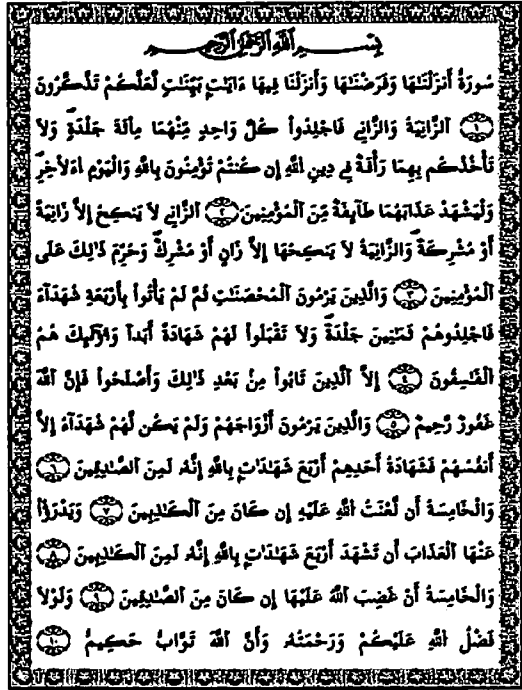 بِسْمِ اللَّهِ الرَّحْمَٰنِ الرَّحِيمِ
سُورَةٌ أَنزَلْنَٰهَا وَفَرَضْنَٰهَا وَأَنزَلْنَا فِيهَا ءَايَٰتٍۭ بَيِّنَٰتٍ لَّعَلَّكُمْ تَذَّكَّرُونَ
١ اَ۬لزَّانِيَةُ وَالزَّانِي فَاجْلِدُواْ كُلَّ وَاحِدٍ مِّنْهُمَا مِاْئَةَ جَلْدَةٍ وَلَا
تَأْخُذْكُم بِهِمَا رَأْفَةٌ فِي دِينِ اللَّهِ إِن كُنتُمْ تُؤْمِنُونَ بِاللَّهِ وَالْيَوْمِ اِ۬لَاخِرِ
وَلْيَشْهَدْ عَذَابَهُمَا طَآئِفَةٌ مِّنَ اَ۬لْمُؤْمِنِينَ ٢ اَ۬لزَّانِي لَا يَنكِحُ إِلَّا زَانِيَةً
أَوْ مُشْرِكَةً وَالزَّانِيَةُ لَا يَنكِحُهَا إِلَّا زَانٍ أَوْ مُشْرِكٌ وَحُرِّمَ ذَٰلِكَ عَلَى
اَ۬لْمُؤْمِنِينَ ٣ وَالَّذِينَ يَرْمُونَ اَ۬لْمُحْصَنَٰتِ ثُمَّ لَمْ يَأْتُواْ بِأَرْبَعَةِ شُهَدَآءَ
فَاجْلِدُوهُمْ ثَمَٰنِينَ جَلْدَةً وَلَا تَقْبَلُواْ لَهُمْ شَهَادَةً أَبَداً وَأُوْلَٰٓئِكَ هُمُ
اُ۬لْفَٰسِقُونَ ٤ إِلَّا اَ۬لَّذِينَ تَابُواْ مِنۢ بَعْدِ ذَٰلِكَ وَأَصْلَحُواْ فَإِنَّ اَ۬للَّهَ
غَفُورٌ رَّحِيمٌ ٥ وَالَّذِينَ يَرْمُونَ أَزْوَاجَهُمْ وَلَمْ يَكُن لَّهُمْ شُهَدَآءُ إِلَّا
أَنفُسُهُمْ فَشَهَادَةُ أَحَدِهِمْ أَرْبَعَ شَهَٰدَٰتٍۭ بِاللَّهِ إِنَّهُۥ لَمِنَ اَ۬لصَّٰدِقِينَ ٦
وَالْخَامِسَةُ أَن لَّعْنَتُ اُ۬للَّهِ عَلَيْهِ إِن كَانَ مِنَ اَ۬لْكَٰذِبِينَ ٧ وَيَدْرَؤُاْ
عَنْهَا اَ۬لْعَذَابَ أَن تَشْهَدَ أَرْبَعَ شَهَٰدَٰتٍۭ بِاللَّهِ إِنَّهُۥ لَمِنَ اَ۬لْكَٰذِبِينَ ٨
وَالْخَامِسَةُ أَنْ غَضِبَ اَ۬للَّهُ عَلَيْهَا إِن كَانَ مِنَ اَ۬لصَّٰدِقِينَ ٩ وَلَوْلَا
فَضْلُ اُ۬للَّهِ عَلَيْكُمْ وَرَحْمَتُهُۥ وَأَنَّ اَ۬للَّهَ تَوَّابٌ حَكِيمٌ ١٠